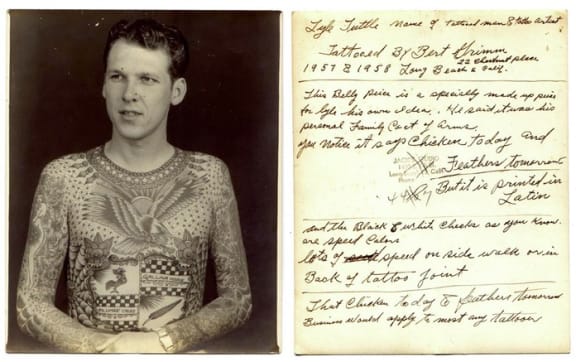 Lyle Tuttle name of tattooed man & tattoo artist
Tattooed By Bert Grimm
22 Chestnut place
1957 & 1958 Long Beach & Calif.
This Belly piece is a specially made up piece
for Lyle his own Idea.. He said it was his
personal Family Coat of Arms
you Notice it says Chicken today and
Feathers tomorrow
But it is printed in
Latin
and the Black & white Checks as you know
are speed Colors
lots of speed on side walk or in
Back of tattoo joint
That Chicken today & feathers tomorrow
Business would apply to most any tattooer